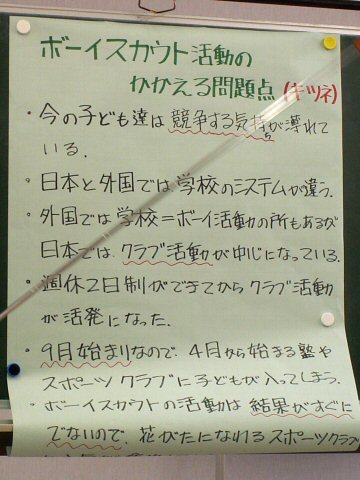 ボーイスカウト活動の
かかえる問題点(キツネ)
・今の子ども達は競争する気持ちが薄れて
いる.
・日本と外国では学校のシステムが違う.
・外国では学校=ボーイ活動の所もあるが
日本では、クラブ活動が中心になっている.
・週休2日制ができてからクラブ活動
が活発になった.
・9月始まりなので、4月から始まる塾や
スポーツクラブに子どもが入ってしまう.
・ボーイスカウトの活動は結果がすぐに
でないので、花がたになれるスポーツクラブ